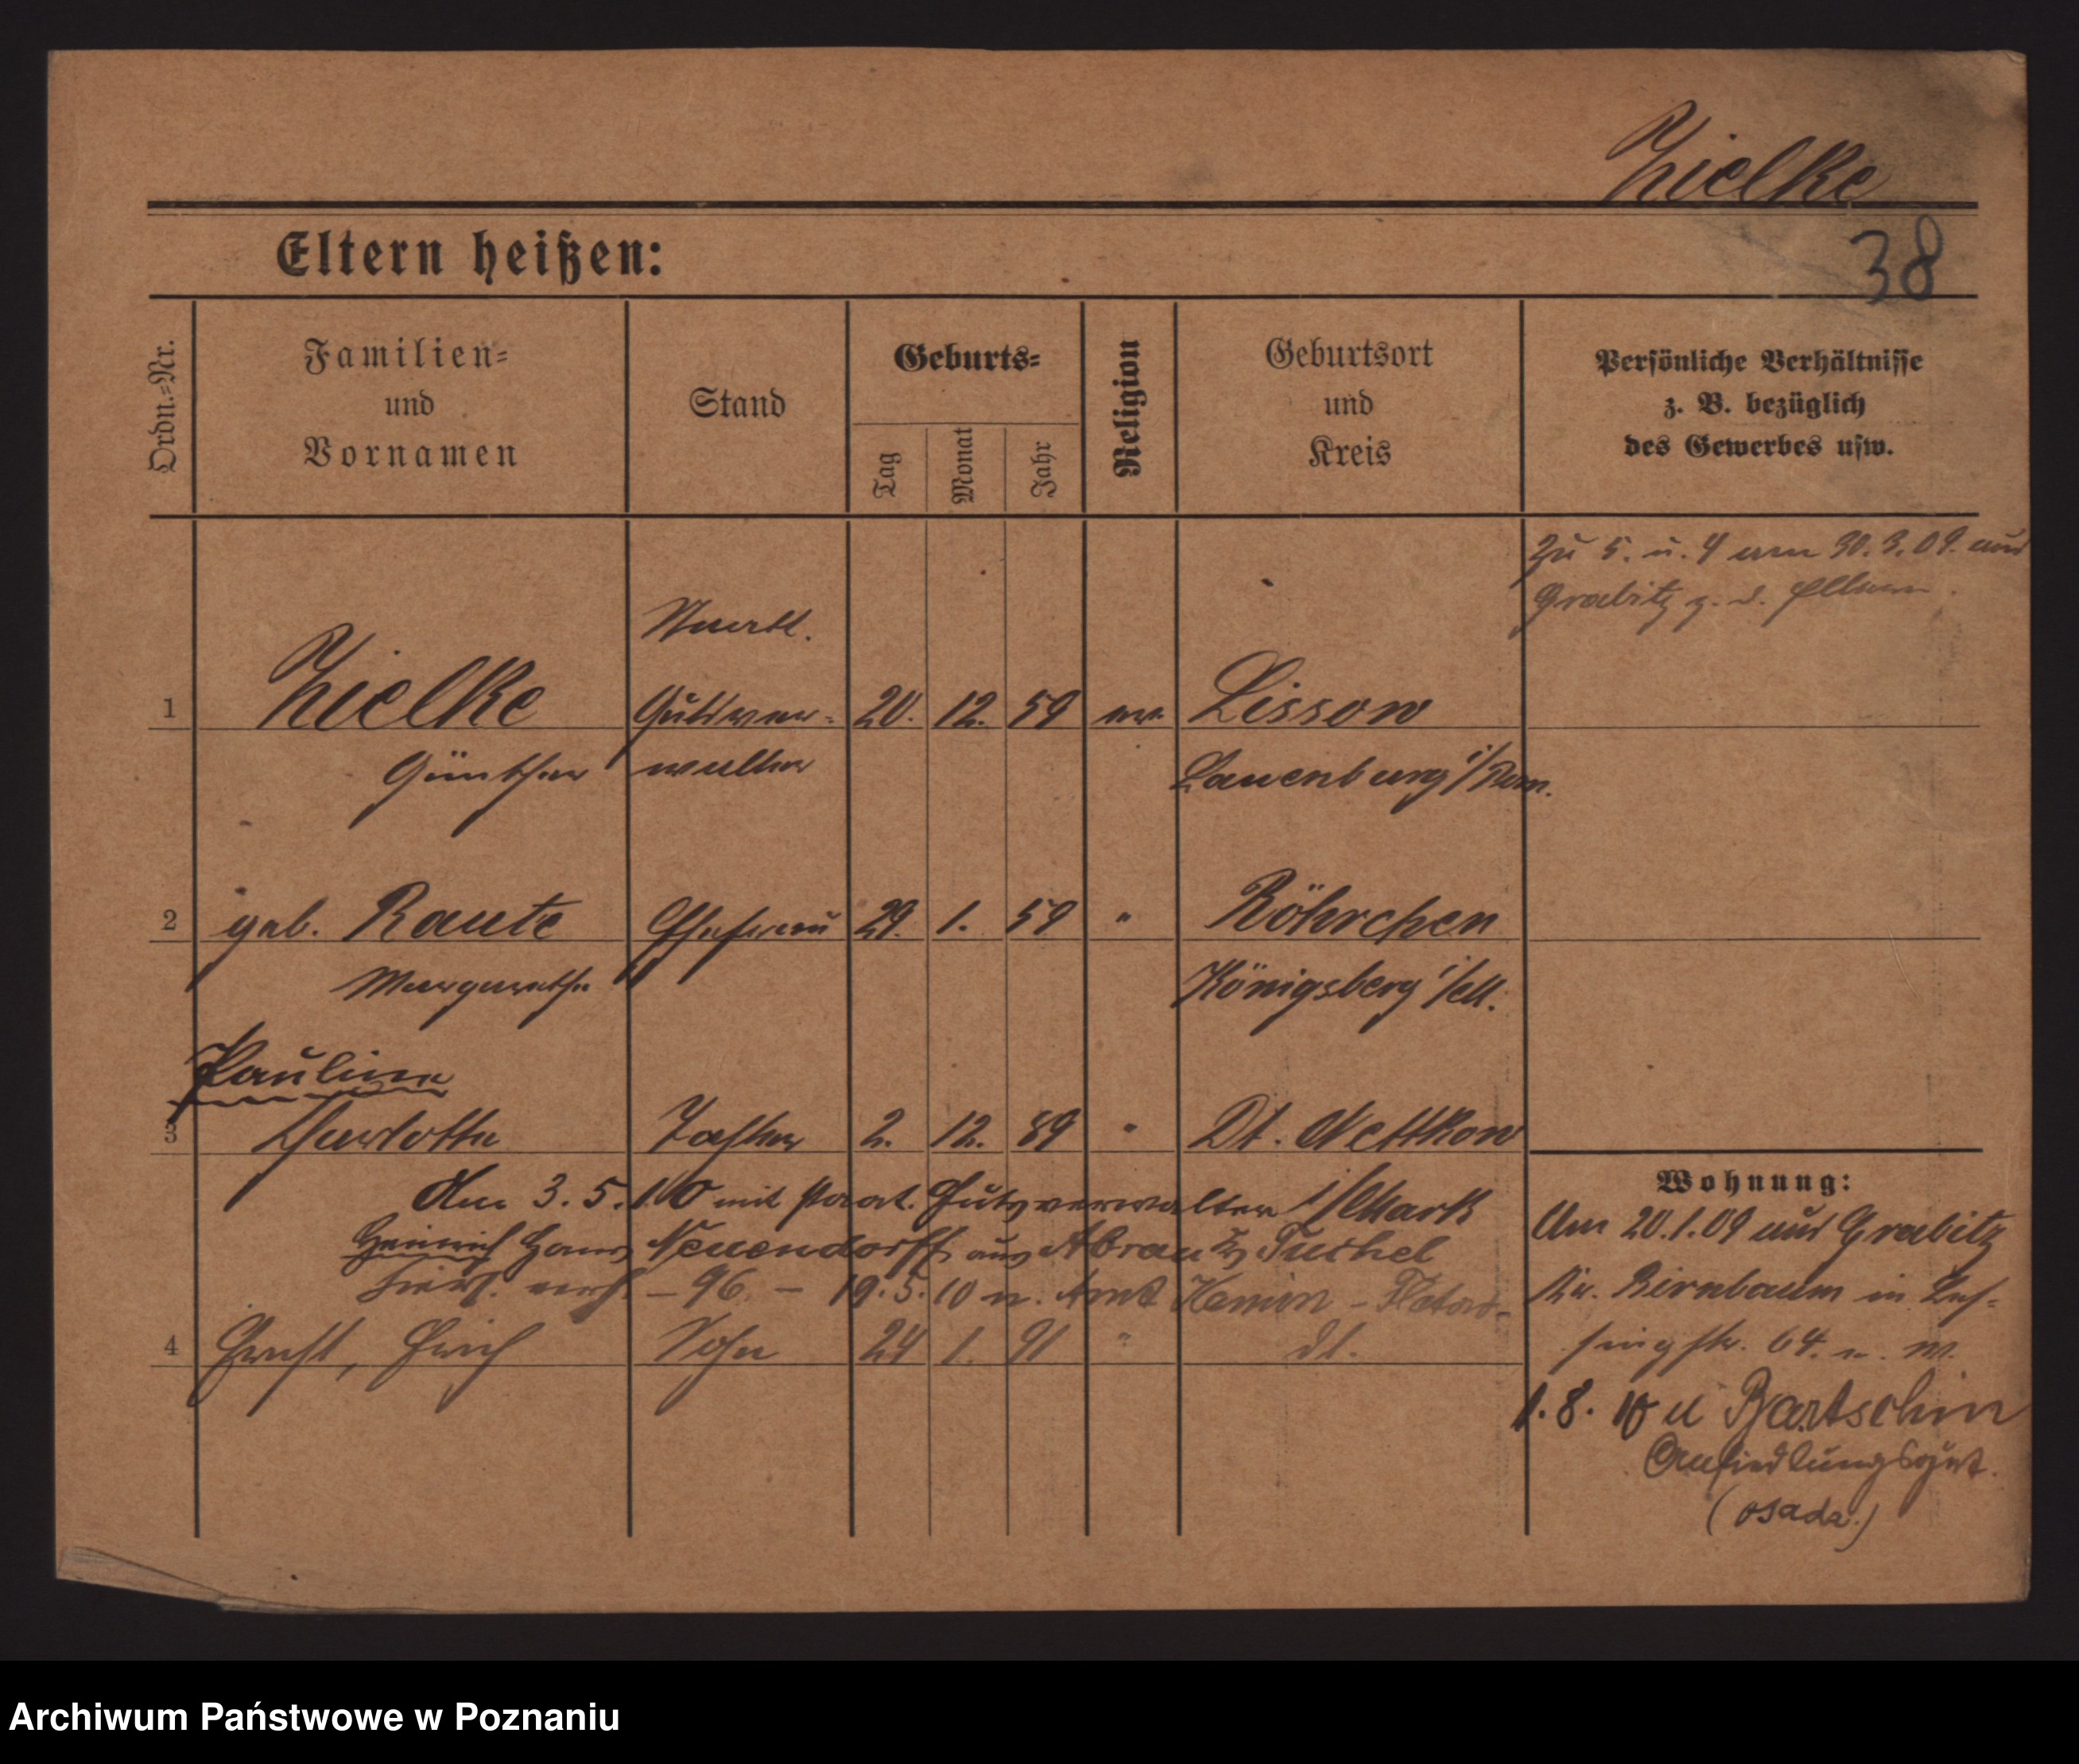 Zielke
38
Eltern heißen:
Ordn.=Nr.
Familien=
und
Vornamen
Stand
Geburts=
Tag
Monat
Jahr
Religion
Geburtsort
und
Kreis
Persönliche Verhältnisse
z. B. bezüglich
des Gewerbes usw.
Zu 5. u. 4 am 30.3.09. aus
Grabitz z. d. Eltern.
Staatl.
1 Zielke Gutsver= 20. 12. 59 ev. Lissow
Günther walter Lauenburg i/Pom.
2 geb. Raute Ehefrau 29. 1. 59 " Röhrchen
Margarethe Königsberg i/M.
Pauline
3 Charlotte Tochter 2. 12. 89 " Dt. Nettkow
Am 3.5.10 mit staat. Gutsverwalter i/Mark
Heinrich Hans Neuendorff aus Abrau Tuchel
verh. – 96 – 19.5.10 n.
4 Ernst, Erich Sohn 24 1. 91 " dt.
Wohnung:
Am 20.1.09 aus Grabitz
Kr. Birnbaum in Les=
singstr. 64.
1.8.10 Bartschin
Ansiedlungsgut.
(osada.)
Archiwum Państwowe w Poznaniu